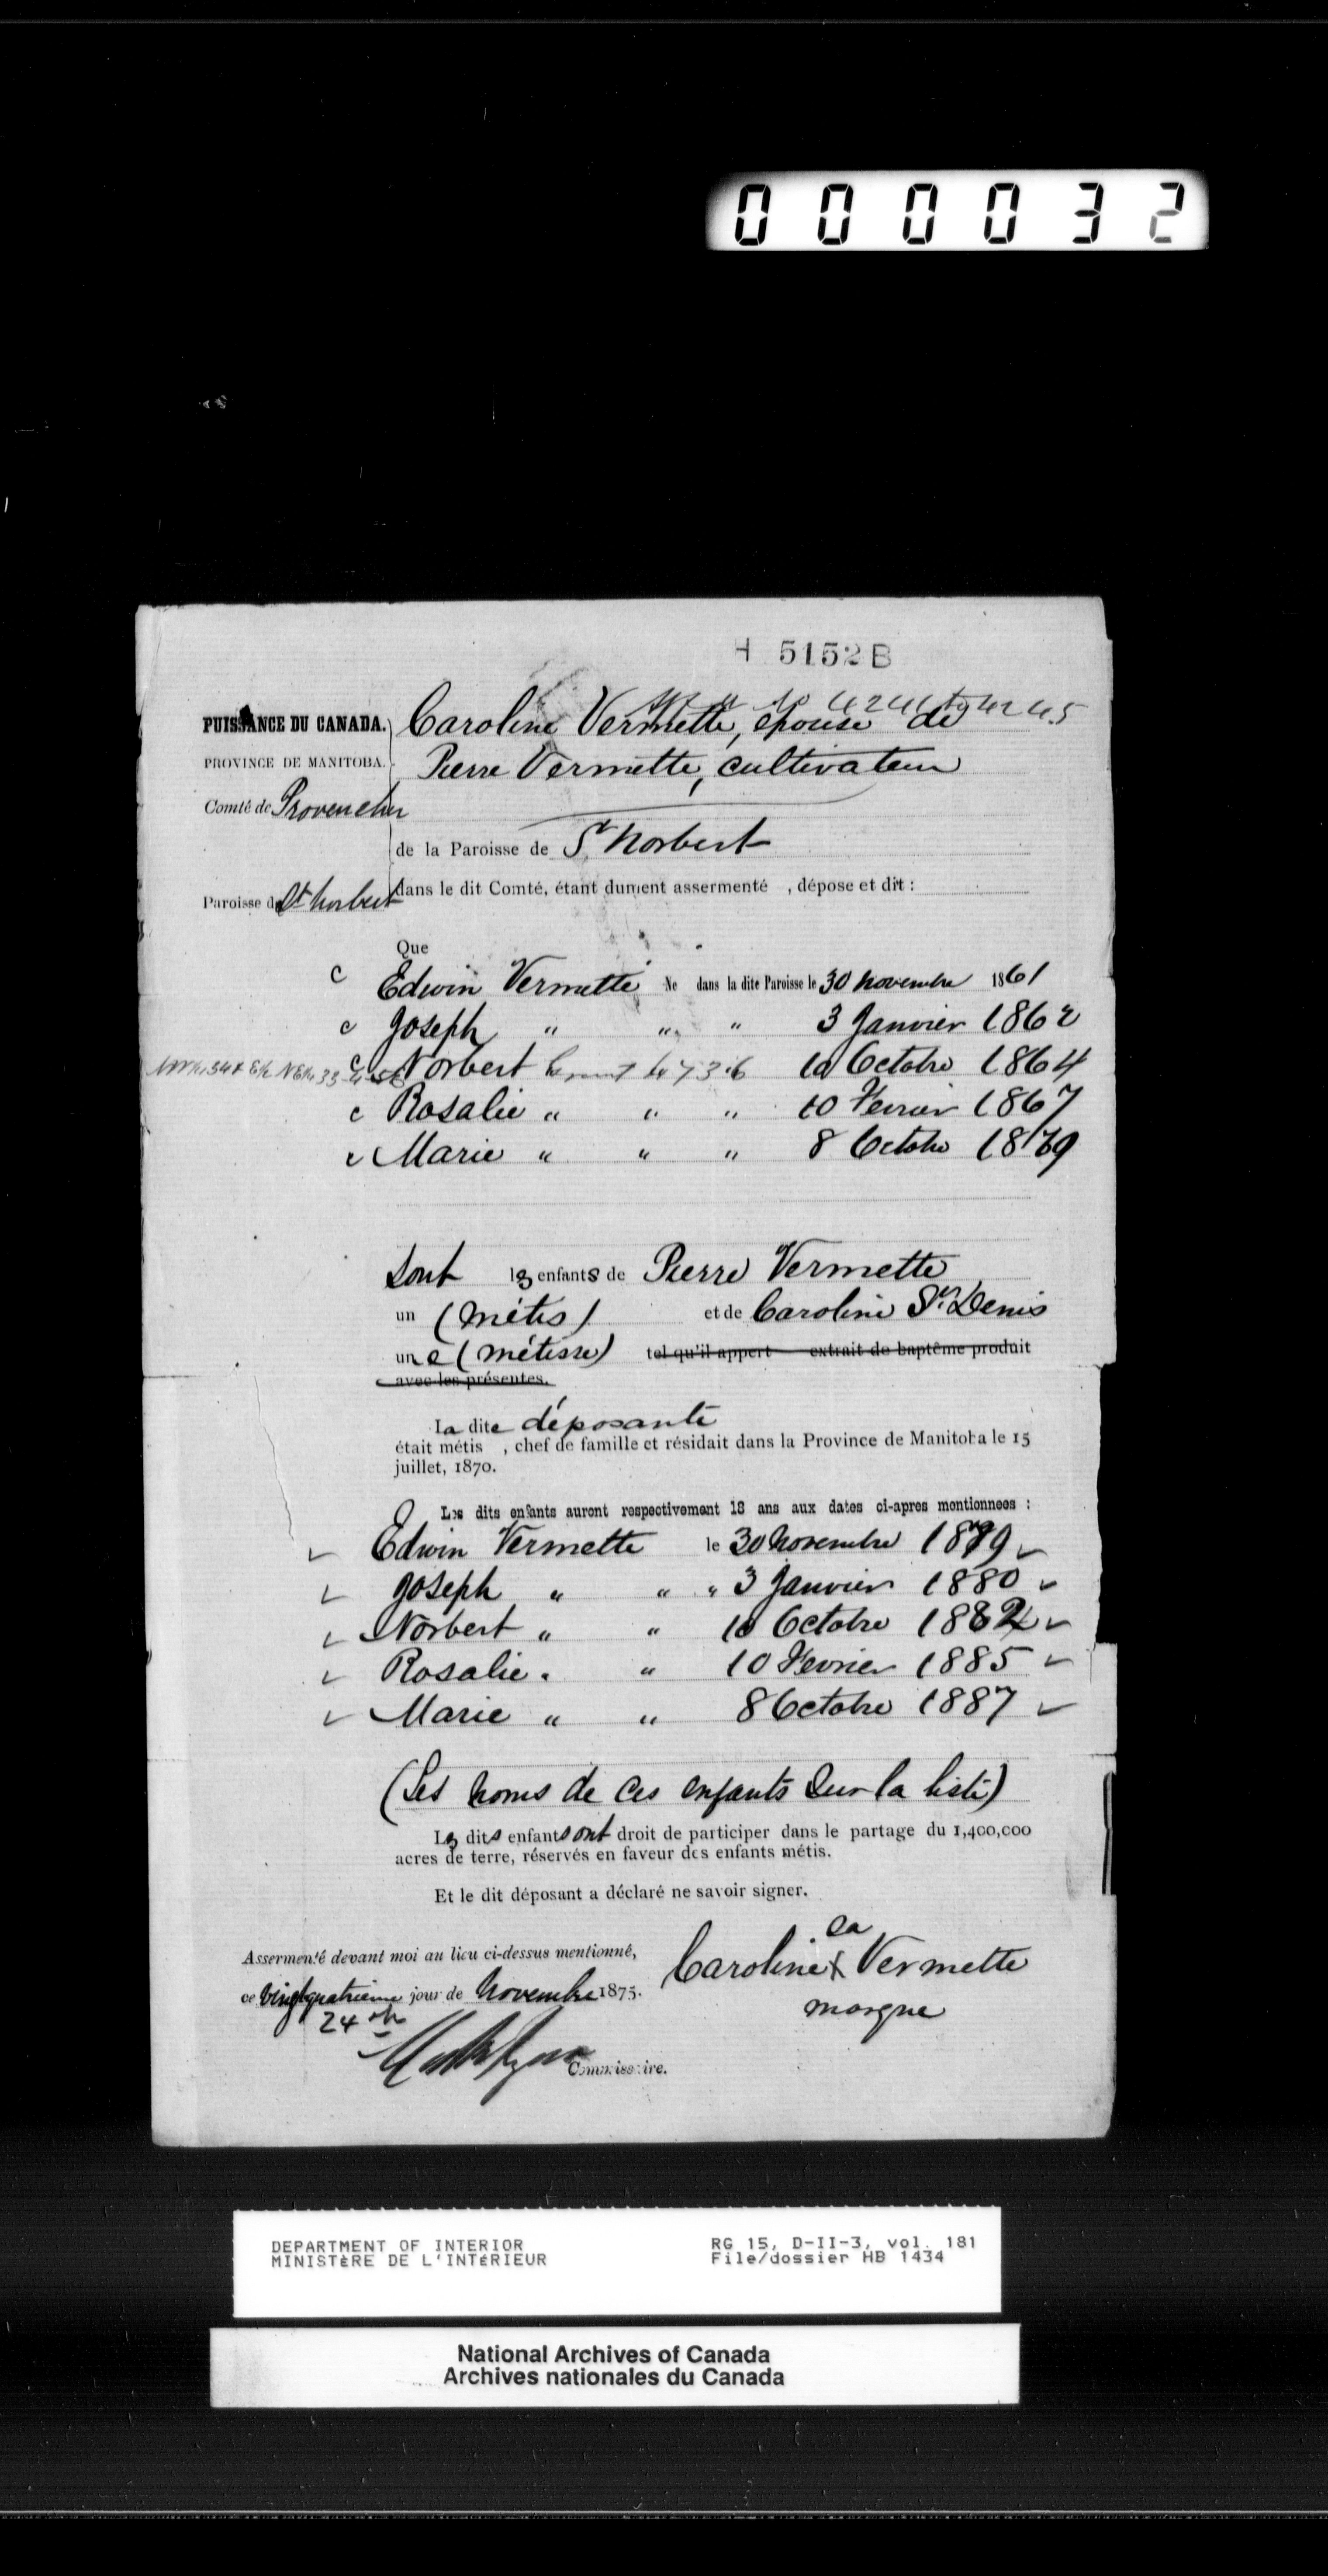 000032
H 5152 B
PUISSANCE DU CANADA.
PROVINCE DE MANITOBA.
Comté de Provencher
Paroisse de St Norbert
Caroline Vermette, épouse de
Pierre Vermette, cultivateur
de la Paroisse de St Norbert
dans le dit Comté, étant dument assermenté , dépose et dit :
Que
c Edwin Vermette Ne dans la dite Paroisse le 30 Novembre 1861
c Joseph " " " 3 Janvier 1862
c Norbert 10 Octobre 1864
c Rosalie " " " 10 Fevrier 1867
c Marie " " " 8 Octobre 1869
Sont les enfants de Pierre Vermette
un (Métis) et de Caroline St. Denis
une (métisse) tel qu'il appert extrait de baptême produit
avec les présentes.
La dite déposante
était métis , chef de famille et résidait dans la Province de Manitoba le 15
juillet, 1870.
Les dits enfants auront respectivement 18 ans aux dates ci-apres mentionnees :
Edwin Vermette le 30 Novembre 1879
Joseph " " " 3 Janvier 1880
Norbert " " 10 Octobre 1882
Rosalie " " 10 Fevrier 1885
Marie " " 8 Octobre 1887
(Les noms de ces enfants sur la liste)
Les dits enfants ont droit de participer dans le partage du 1,400,000
acres de terre, réservés en faveur des enfants métis.
Et le dit déposant a déclaré ne savoir signer.
Assermenté devant moi au lieu ci-dessus mentionné,
ce vingtquatrieme jour de Novembre 1875.
24th
Commissaire.
sa
Caroline X Vermette
marque
DEPARTMENT OF INTERIOR
MINISTÈRE DE L'INTÉRIEUR
RG 15, D-II-3, vol. 181
File/dossier HB 1434
National Archives of Canada
Archives nationales du Canada